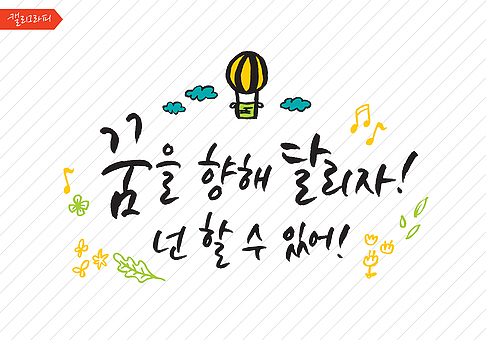 캘리그라피
꿈을 향해 달리자!
넌 할 수 있어!